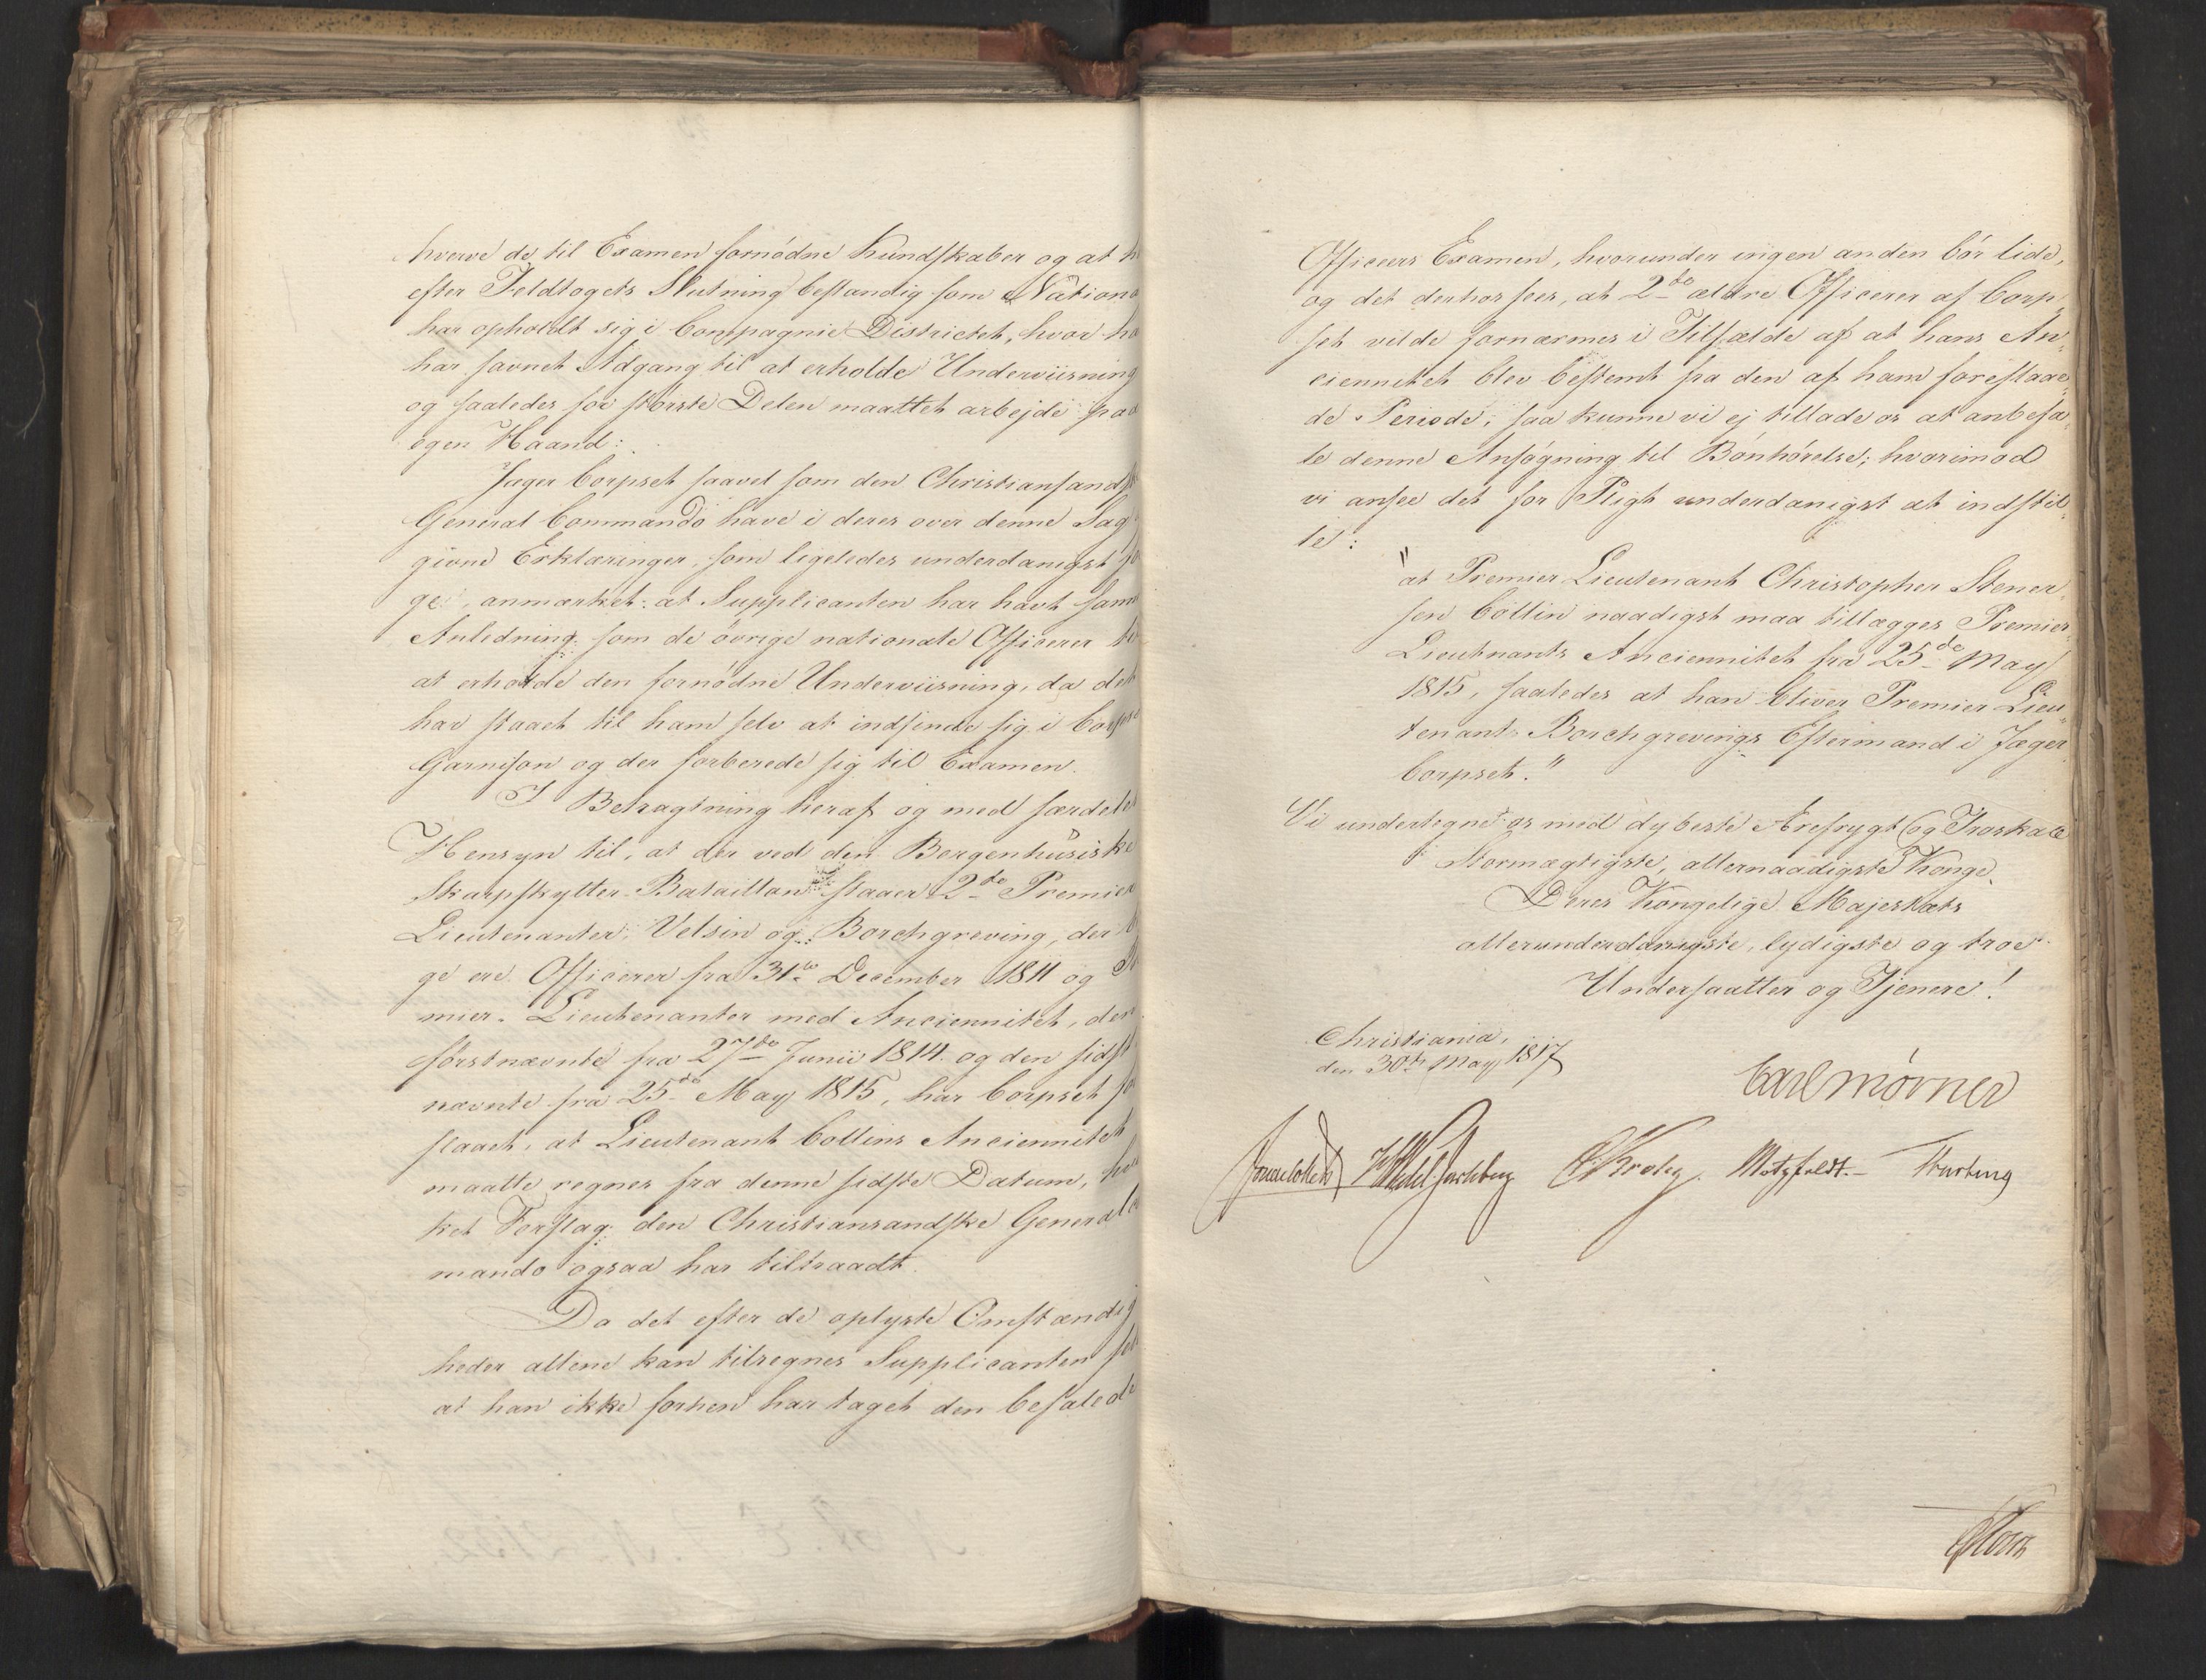 hverve de til Examen fornødne Kundskaber og at h
efter Feldtogets Slutning bestandig som Nationa
har opholdt sig i Compagnie Districtet, hvor ha
har savnet Adgang til at erholde Underviisning
og saaledes for største Delen maattet arbejde paa
egen Haand:
Jæger Corpset saavel som den Christiansandsk
General Commando have i deres over denne Sag
givne Erklæringer, som ligeledes underdanigst fø
ge, anmærket: at Supplicanten har havt sam
Anledning som de övrige nationale Officerer ti
at erholde den fornødne Underviisning, da det
har staaet til ham selv at indfinde sig i Corps
Garnison og der forberede sig til Examen.
I Betragtning heraf og med særdeles
Hensyn til, at der ved den Bergenhusiske
Skarpskytter-Bataillon staaer 2de Premier
Lieutenanter, Velsin og Borchgreving, der
ge ere Officerer fra 31te December 1811 og Pr
mier-Lieutenanter med Anciennitet, den
førstnævnte fra 27de Junii 1814 og den sidst
nævnte fra 25de May 1815, har Corpset fo
slaaet, at Lieutenant Collins Anciennitet
maatte regnes fra denne sidste Datum, hvil
ket Forslag den Christiansandske General
mando ogsaa har tiltraadt.
Da det efter de oplyste Omstændig
heder allene kan tilregnes Supplicanten selv
at han ikke forhen har taget den befalede
Officeers Examen, hvorunder ingen anden bör lide,
og det derhos sees, at 2de ældre Officerer af Corp„
set vilde fornærmes i Tilfælde af at hans An„
ciennitet blev bestemt fra den af ham foreslaae„
de Periode, saa kunne vi ej tillade os at anbefa„
le denne Ansögning til Bönhörelse; hvorimod
vi ansee det for Pligt underdanigst at indstil„
le:
"at Premier Lieutenant Christopher Stener„
sen Collin naadigst maa tillægges Premier„
Lieutnants Anciennitet fra 25de May
1815, saaledes at han bliver Premier Lieu„
tenant Borchgrevings Eftermand i Jæger
Corpset."
Vi undertegne os med dybeste Ærefrygt og Troskab
Stormægtigste, allernaadigste Konge,
Deres Kongelige Majestæts
allerunderdanigste, lydigste og troe
Undersaatter og Tjenere!
Christiania,
den 30te May 1817
Carl Mörner
Sommerhielm HWedel Jarlsberg CKrohg. Motzfeldt.